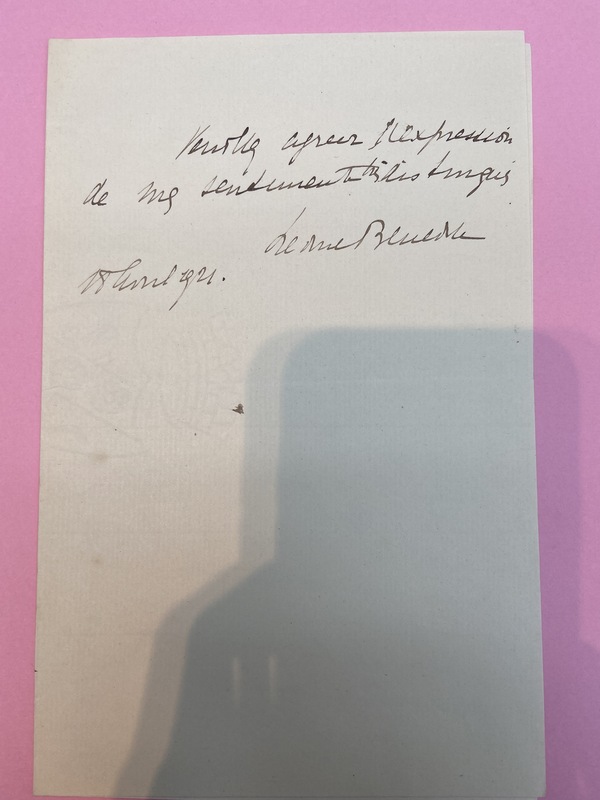 Veuillez agréer l'expression
de mes sentiments très distingués
Léonce Bénédite